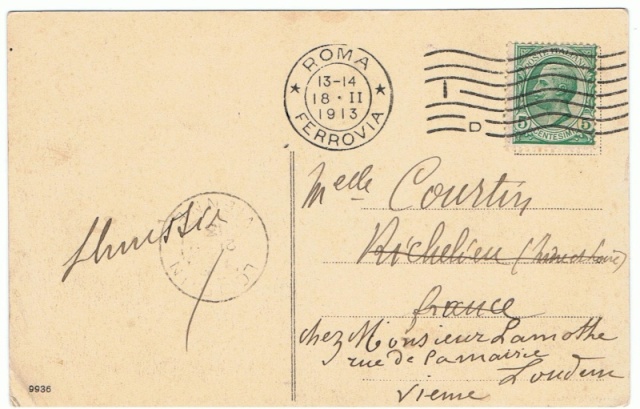 ROMA
13-14
18 · II
1913
FERROVIA
D
POSTE ITALIANE
5 5
CENTESIMI
Melle Courtin
Richelieu (Indre et Loire)
france
chez Monsieur Lamothe
rue de la mairie
Loudun
Vienne
9936